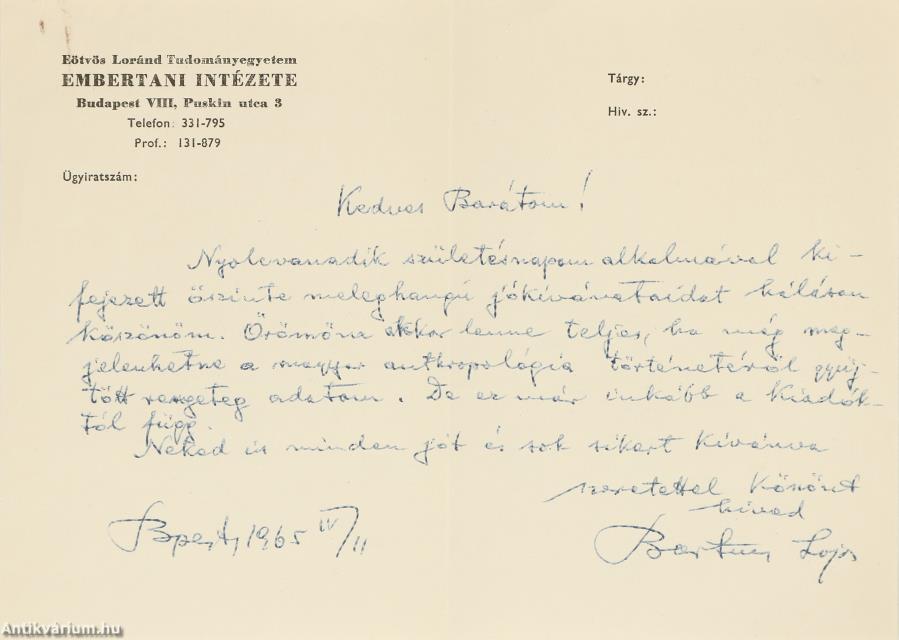 Eötvös Loránd Tudományegyetem
EMBERTANI INTÉZETE
Budapest VIII, Puskin utca 3
Telefon: 331-795
Prof.: 131-879
Ügyiratszám:
Tárgy:
Hiv. sz.:
Kedves Barátom!
Nyolcvanadik születésnapom alkalmával ki-
fejezett őszinte meleghangú jókívánataidat hálásan
köszönöm. Örömöm akkor lenne teljes, ha még meg-
jelenhetne a magyar anthropológia történetéről gyűj-
tött rengeteg adatom. De ez már inkább a kiadók-
tól függ.
Neked is minden jót és sok sikert kívánva
szeretettel köszönt
híved
Bpest, 1965 IV/11
Bartucz Lajos
Antikvárium.hu